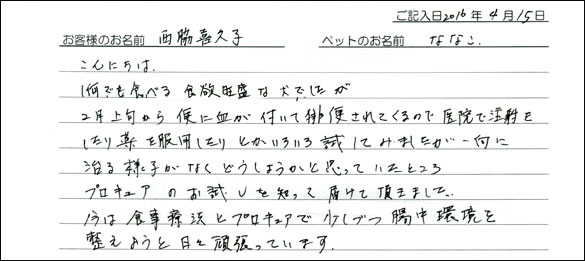 ご記入日 2016年 4月 15日
お客様のお名前 西脇喜久子 ペットのお名前 ななこ.
こんにちは.
何でも食べる 食欲旺盛な犬でしたが
2月上旬から 便に血が付いて排便されてくるので医院で注射を
したり薬を服用したりとかいろいろ試してみましたが一向に
治る様子がなくどうしようかと思っていたところ
プロキュアのお試しを知って届けて頂きました.
今は食事療法とプロキュアで少しづつ腸中環境を
整えようと日々頑張っています.